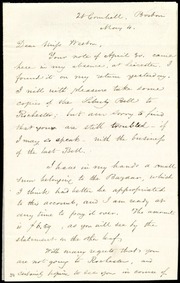 25 Cornhill, Boston
May 4.
Dear Miss Weston,
Your note of April 30. came
here in my absence, at Lincoln. I
found it on my return yesterday.
I will with pleasure take some
copies of the Liberty Bell to
Rochester, but am sorry to find
that you are still troubled if
I may so speak with the business
of the last Bell.
I have in my hands a small
sum belonging to the Bazaar, which
I think had better be appropriated
to this account, and I am ready at
any time to pay it over. The amount
is as you will see by the
statement on the other leaf.
With many regrets, that you are
not going to Rochester, and
hope to see you in some of